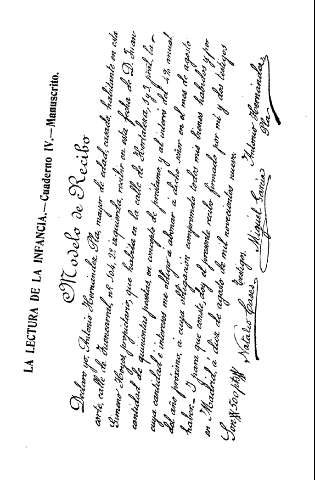 LA LECTURA DE LA INFANCIA.—Cuaderno IV.—Manuscrito.
Modelo de Recibo
Declaro yo, Antonio Hernández Pla, mayor de edad, casado, habitante en esta
corte, calle de n.º 8, piso 2º izquierda, recibo en esta fecha de D. Juan
Gimeno Hongos, propietario, que habita en la calle de Hortaleza, 3 y 5, pral, la
cantidad de quinientas pesetas en concepto de préstamo, y al interés del 4% anual
cuya cantidad é intereses me obligo á abonar á dicho señor en el mes de agosto
del año próximo, á cuya obligación comprometo todos mis bienes habidos y por
haber.—Y para que conste, doy el presente recibo firmado por mí y dos testigos
en Madrid, á diez de agosto de mil novecientos nueve.
Son 500 ptas
Testigos,
Natalio Casas Miguel García Antonio Hernández
Pla